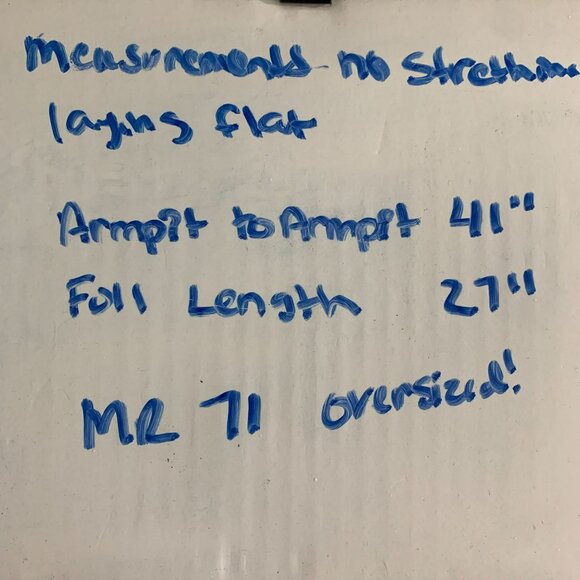 Measurements no Strething
laying flat
Armpit to Armpit 41"
Full Length 27"
MR 71 oversized!